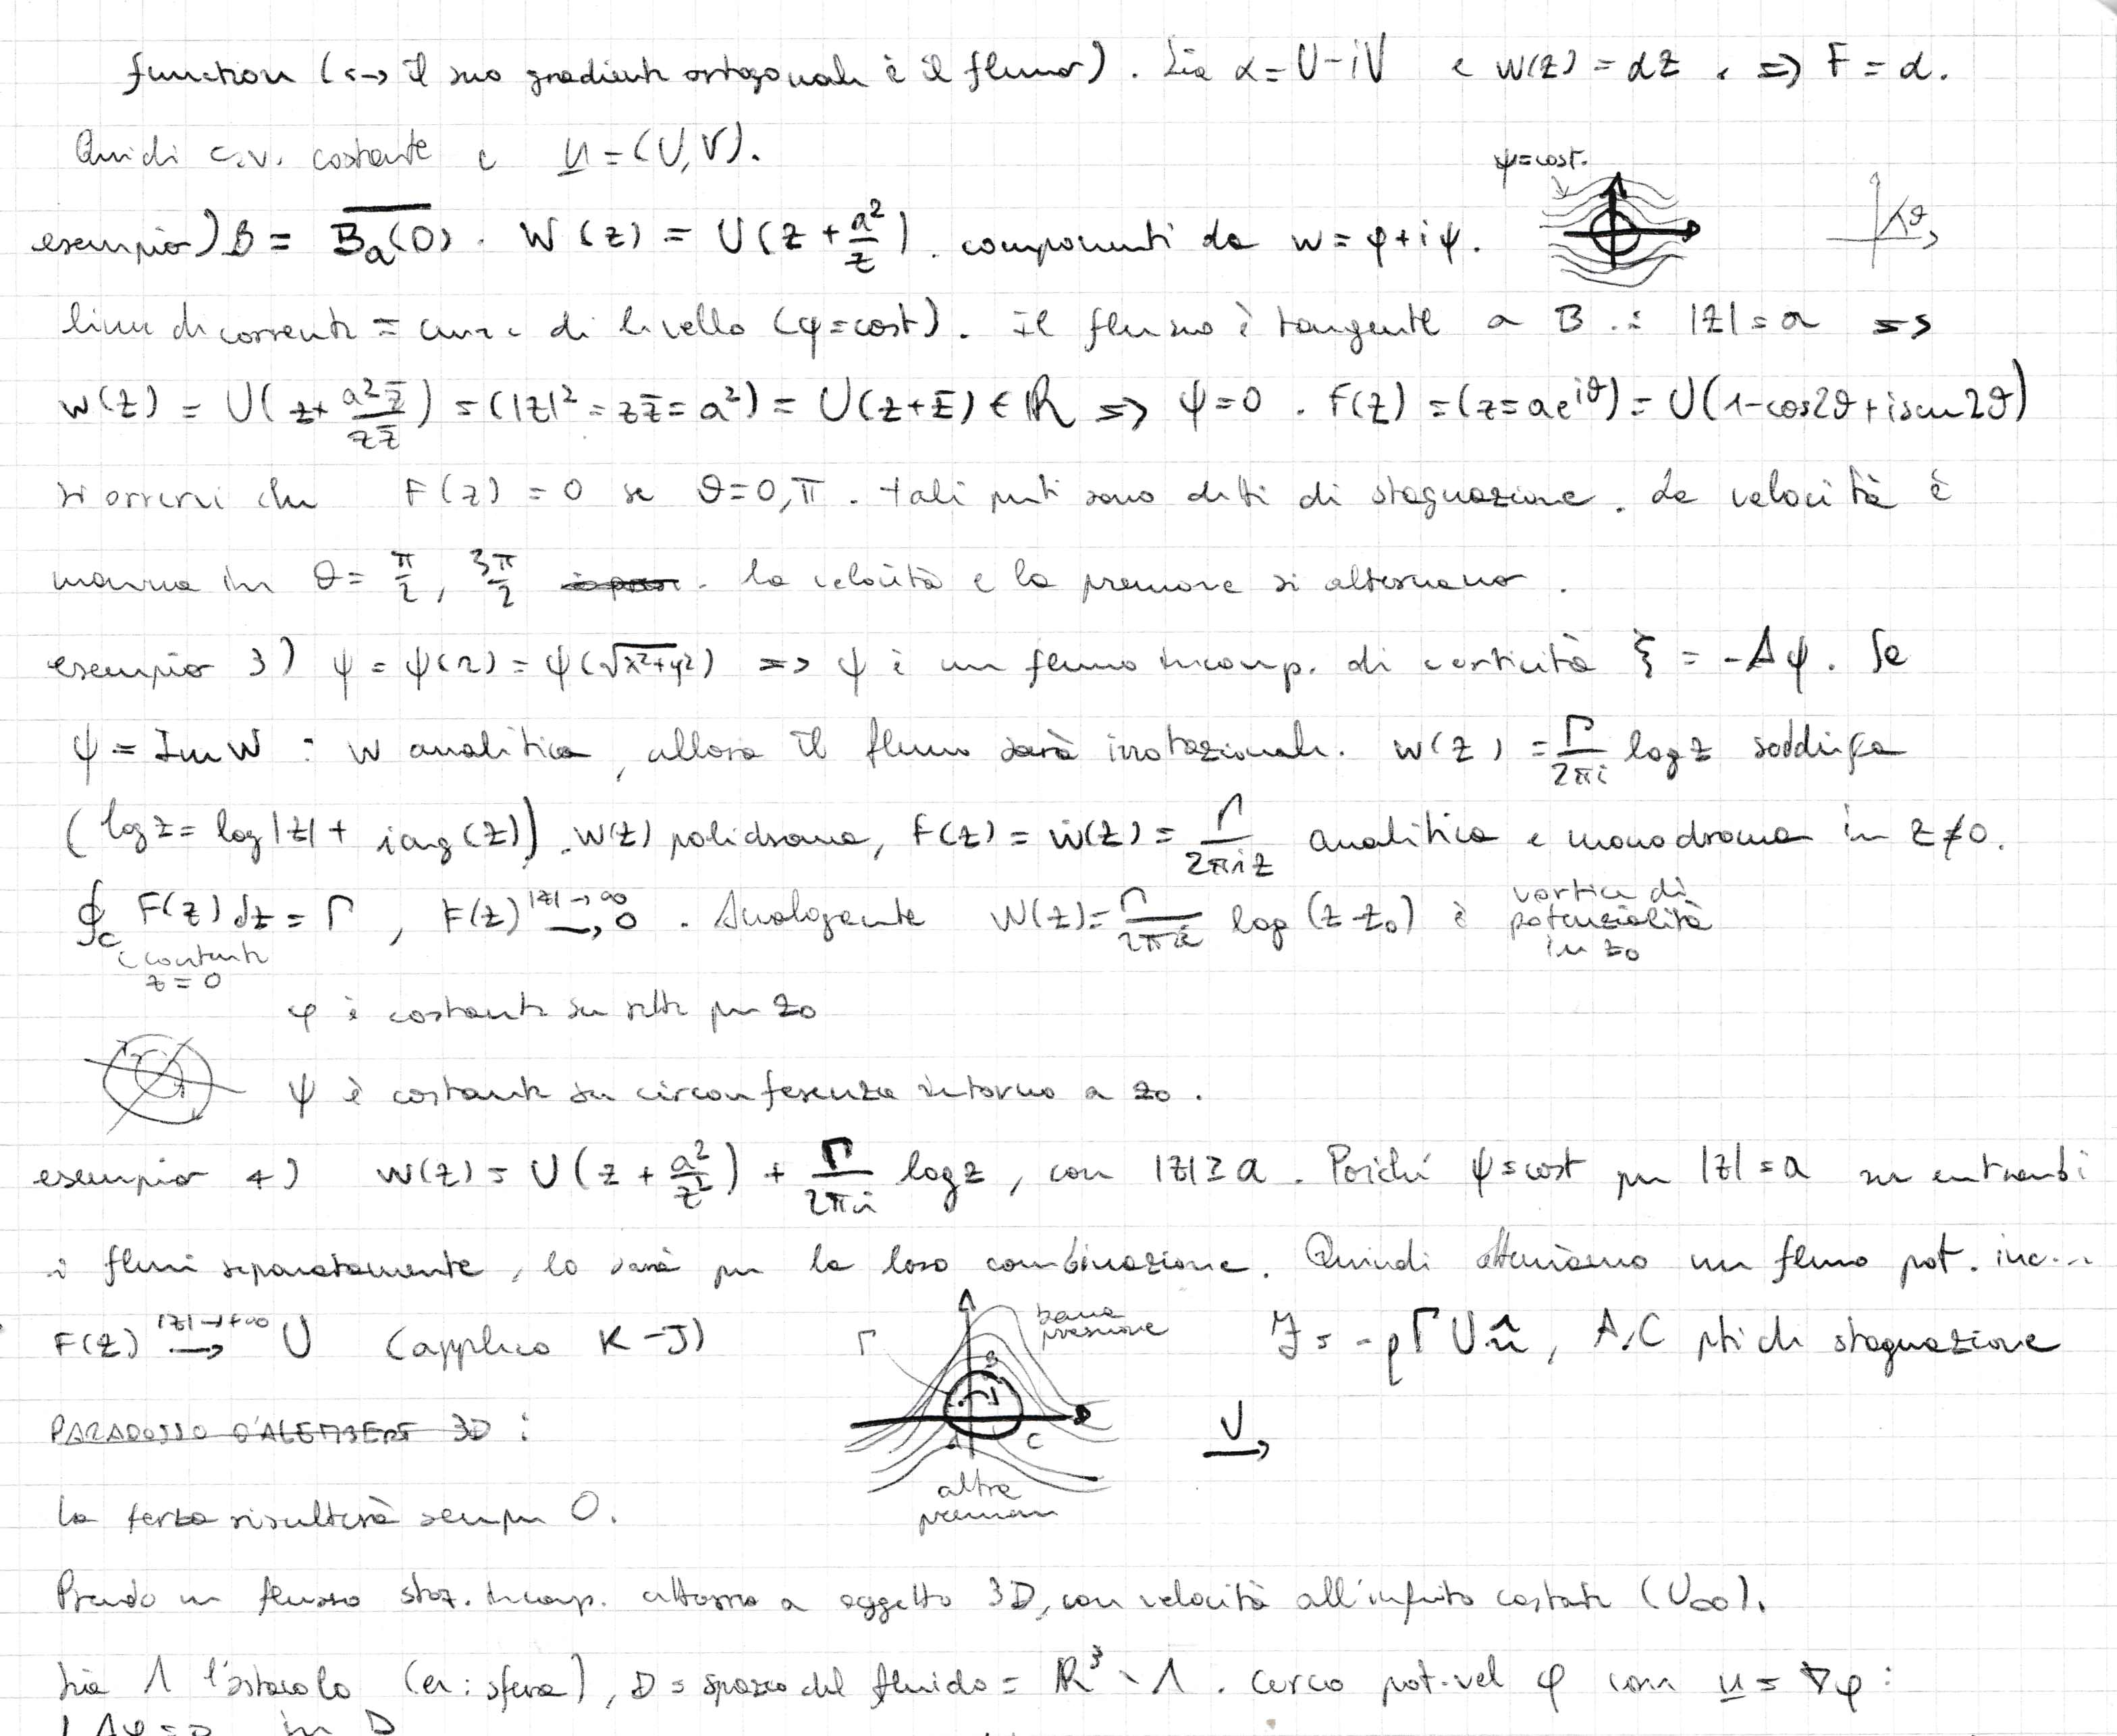 function (<-> il suo gradiente ortogonale è il flusso). Sia α = U - iV e W(z) = αz, => F = α.
Quindi c.v. costante e u = (U, V).
ψ=cost.
esempio) B = \overline{B_a(0)}. W(z) = U(z + a²/z). componenti da w = φ + iψ.
ϑ
linee di corrente = curve di livello (ψ=cost). Il flusso è tangente a B : |z| = a =>
W(z) = U(z + a²z̄/zz̄) = (|z|² = zz̄ = a²) = U(z + z̄) ∈ ℝ => ψ = 0. F(z) = (z = ae^{iϑ}) = U(1 - cos2ϑ + i sen 2ϑ)
si osservi che F(z) = 0 se ϑ = 0, π. tali punti sono detti di stagnazione. La velocità è
massima in ϑ = π/2, 3π/2. la velocità e la pressione si alternano.
esempio 3) ψ = ψ(r) = ψ(√(x²+y²)) => ψ è un flusso incomp. di vorticità ξ = -Δψ. Se
ψ = Im W : W analitica, allora il flusso sarà irrotazionale. W(z) = Γ/2πi log z soddisfa
(log z = log|z| + i arg(z)). W(z) polidroma, F(z) = ẇ(z) = Γ/2πiz analitica e monodroma in z ≠ 0.
∮_C F(z) dz = Γ, F(z) →^{|z|→∞} 0. Analogamente W(z) = Γ/2πi log(z - z₀) è vortice di potenzialità in z₀
z = 0
φ è costante su rette per z₀
ψ è costante su circonferenza intorno a z₀.
esempio 4) W(z) = U(z + a²/z) + Γ/2πi log z, con |z| ≥ a. Poiché ψ=cost per |z| = a su entrambi
i flussi separatamente, lo sarà per la loro combinazione. Quindi otteniamo un flusso pot. inc...
F(z) →^{|z|→+∞} U (applico K-J)
Γ
bassa pressione
B
A
C
alte pressioni
ℱ = -ρΓU n̂, A,C pti di stagnazione
U
PARADOSSO D'ALEMBERT 3D :
la forza risulterà sempre 0.
Prendo un flusso staz. incomp. attorno a oggetto 3D, con velocità all'infinito costante (U∞).
Sia Λ l'ostacolo (es: sfera), D = spazio del fluido = ℝ³ \ Λ. Cerco pot.vel φ con u = ∇φ :
Δφ = 0 in D